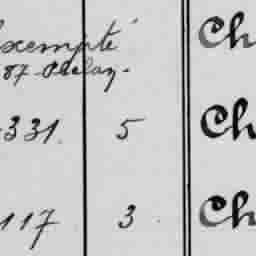 exempté Ch
87
331. 5 Ch
117 3 Ch